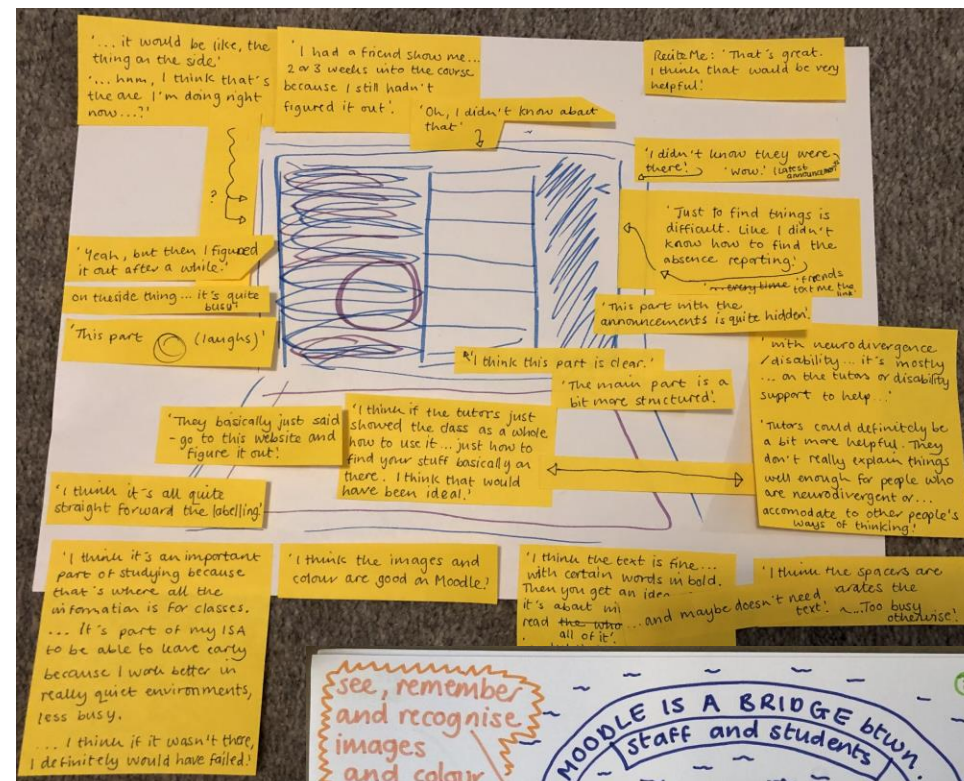 '... it would be like, the
thing on the side.'
'... hmm, I think that's
the one I'm doing right
now...?'
'I had a friend show me...
2 or 3 weeks into the course
because I still hadn't
figured it out'.
'Oh, I didn't know about
that'
ReciteMe: 'That's great.
I think that would be very
helpful.'
'I didn't know they were
there.' 'Wow.' (latest
announcement
?
'Just to find things is
difficult. Like I didn't
know how to find the
absence reporting.'
everytime 'friends
sent me the
link.'
'Yeah, but then I figured
it out after a while.'
on the side thing ... it's quite
busy'
'This part (laughs)'
'This part with the
announcements is quite hidden'.
'I think this part is clear.'
'The main part is a
bit more structured'.
'with neurodivergence
/disability... it's mostly
... on the tutors or disability
support to help...'
'Tutors could definitely be
a bit more helpful. They
don't really explain things
well enough for people who
are neurodivergent or...
accomodate to other people's
ways of thinking.'
'They basically just said
- go to this website and
figure it out.'
'I think if the tutors just
showed the class as a whole
how to use it... just how to
find your stuff basically on
there. I think that would
have been ideal.'
'I think it's all quite
straight forward the labelling.'
'I think it's an important
part of studying because
that's where all the
information is for classes.
... It's part of my ISA
to be able to leave early
because I work better in
really quiet environments,
less busy.
... I think if it wasn't there,
I definitely would have failed.'
'I think the images and
colour are good on Moodle.'
'I think the text is fine...
with certain words in bold.
Then you get an idea
it's about
read the who
all of it.'
... and maybe doesn't need
text.'
'I think the spacers are
arates the
... Too busy
otherwise.'
see, remember
and recognise
images
and colour
MOODLE IS A BRIDGE btwn.
staff and students